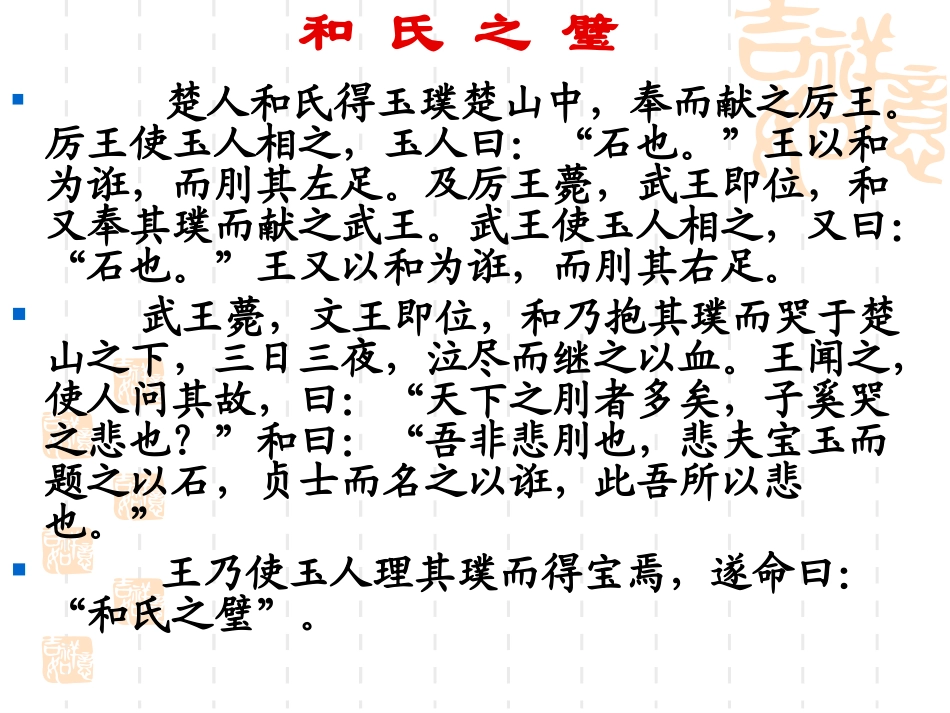 和氏之璧
楚人和氏得玉璞楚山中，奉而献之厉王。
厉王使玉人相之，玉人曰：“石也。”王以和
为诳，而刖其左足。及厉王薨，武王即位，和
又奉其璞而献之武王。武王使玉人相之，又曰：
“石也。”王又以和为诳，而刖其右足。
武王薨，文王即位，和乃抱其璞而哭于楚
山之下，三日三夜，泣尽而继之以血。王闻之，
使人问其故，曰：“天下之刖者多矣，子奚哭
之悲也？”和曰：“吾非悲刖也，悲夫宝玉而
题之以石，贞士而名之以诳，此吾所以悲
也。”
王乃使玉人理其璞而得宝焉，遂命曰：
“和氏之璧”。
吉祥如意
吉祥如意
吉祥如意
吉祥如意
吉祥如意
吉祥如意
吉祥如意